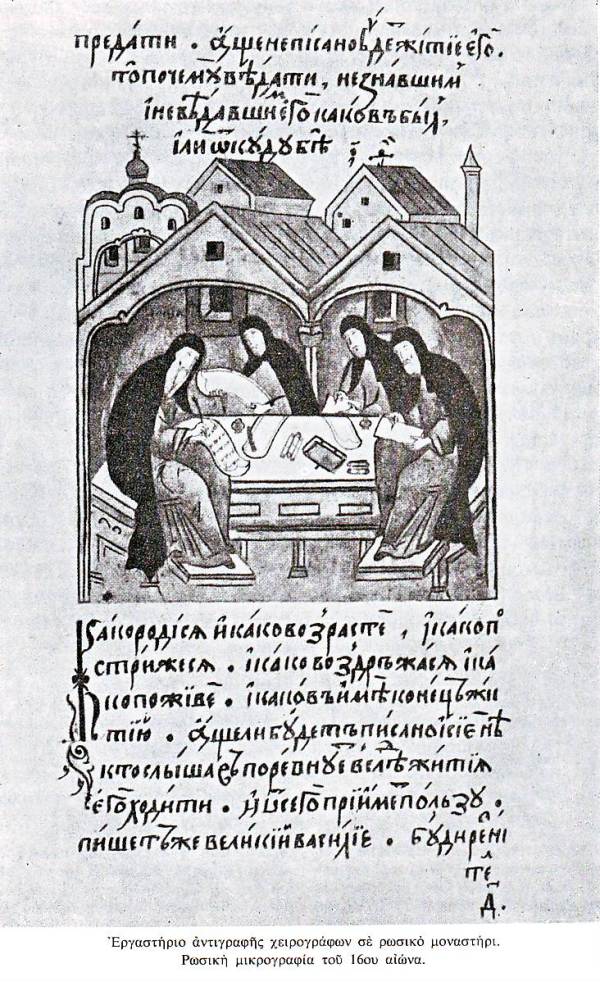 предати . аще не писано бꙋде житїе его .
то почемꙋ вѣдати , незнавшим
i невѣдавши его каковъ был ,
iли ѿкꙋдꙋ бѣ
Како родiся и како возрасте , iкако по
стрижеся . iкако воздръжася iка
ко поживе . iкаковъ имѣ конецъ жи
тїю . аще ли бꙋдетъ писано i сїе нѣ
кто слышавъ поревнꙋе житїя
его ходити . и ѿ сего прїиме ползꙋ .
пишетъ же великїй василїе . бꙋди ревнi
те
Ἐργαστήριο ἀντιγραφῆς χειρογράφων σὲ ρωσικὸ μοναστήρι.
Ρωσικὴ μικρογραφία τοῦ 16ου αἰώνα.